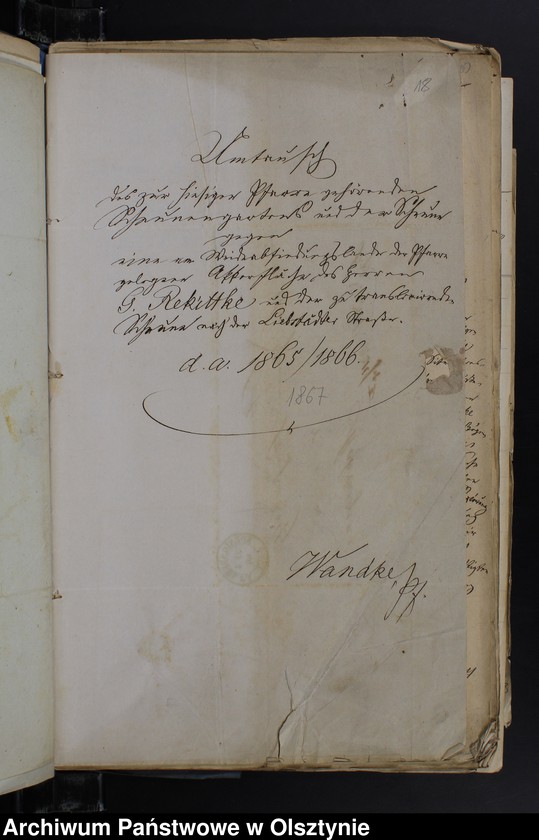 18
Umtausch
des zur hiesigen Pfarre gehörenden
Scheunengartens und der Scheune
gegen
eine am Weideabfindungslande der Pfarre
gelegene Ackerfläche des Herren
G. Rekittke und der zu translocirenden
Scheune nach der Liebstädter Straße.
d. a. 1865/1866.
1867
Wandke, Pf.
Archiwum Państwowe w Olsztynie